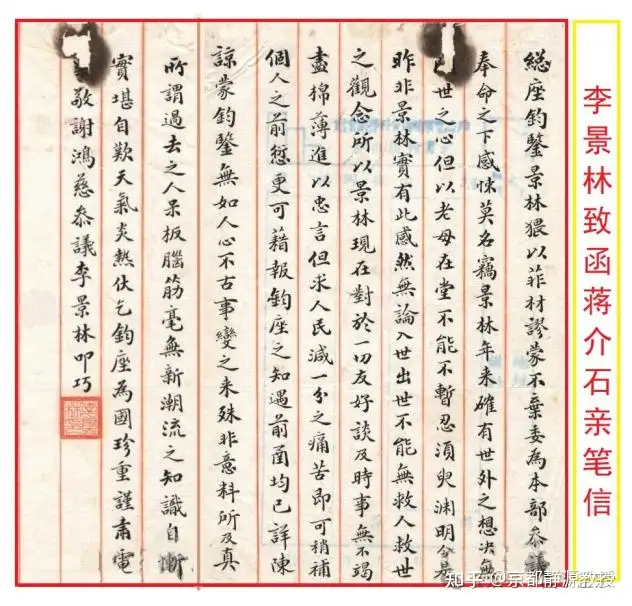 李景林致函蒋介石亲笔信
総座鈞鑒景林猥以菲材謬蒙不棄委為本部叅議
奉命之下感悚莫名竊景林年来確有世外之想决無
世之心但以老母在堂不能不暫忍須臾渊明今是
昨非景林實有此感然無論入世出世不能無救人救世
之觀念所以景林現在對於一切友好談及時事無不竭
盡棉薄進以忠言但求人民減一分之痛苦即可稍補
個人之前愆更可藉報鈞座之知遇前函均已詳陳
諒蒙鈞鑒無如人心不古事變之来殊非意料所及真
所謂過去之人呆板腦筋毫無新潮流之知識自慚
實堪自歎天氣炎熱伏乞鈞座為國珍重謹肅電
敬謝鴻慈叅議李景林叩巧
知乎 @京都静源教授